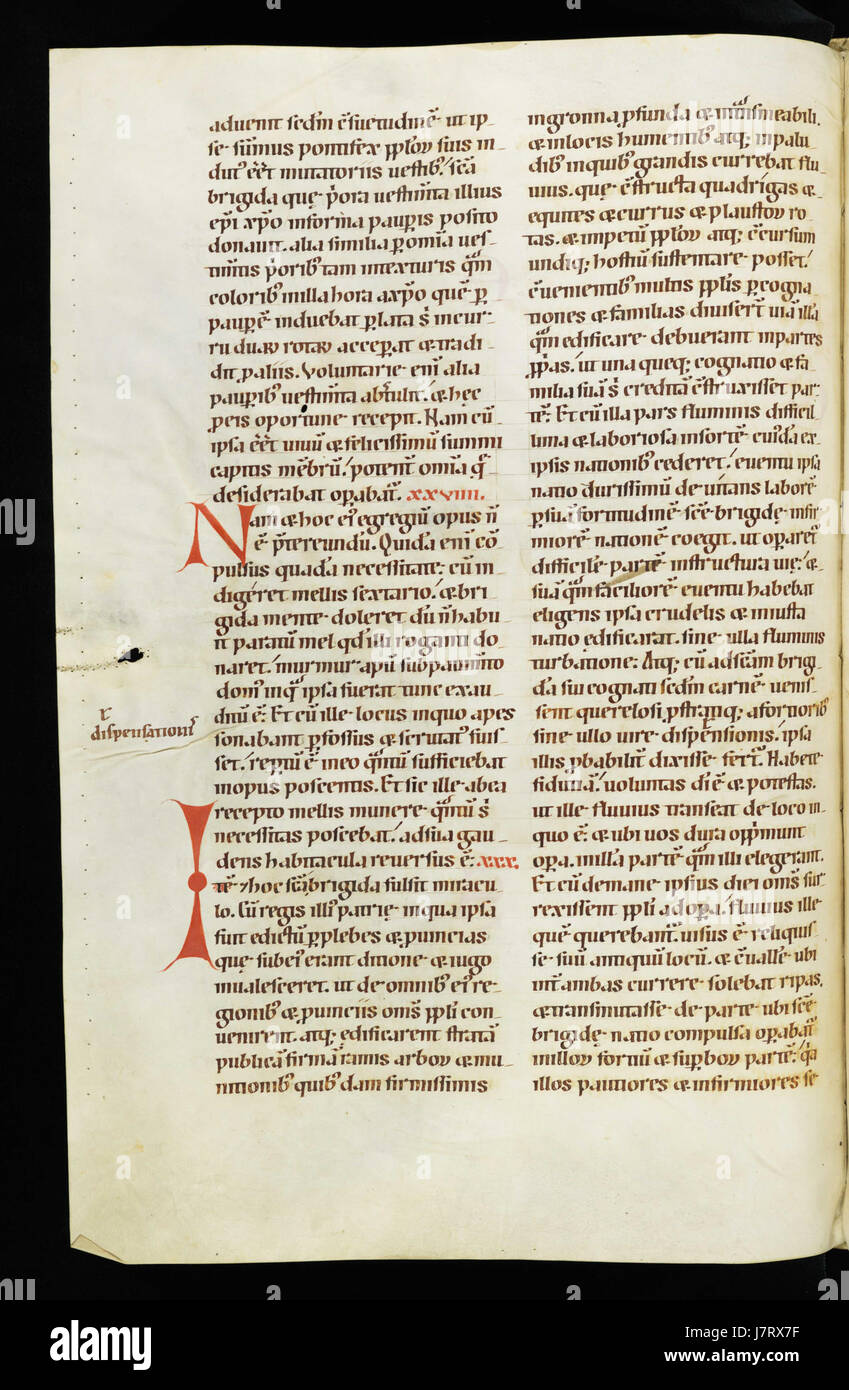 aduenit sedm̄ c̄suetudinē. ut ip-
se sūmus pontifex pplōꝝ suis in
dut' eēt mutatoriis uestib'. sc̄a
brigida quę p̄ora uestim̄ta illius
ep̄i xp̄o in forma paupis posito
donauit. alia similia p omīa ues-
tim̄tis p̄orib' tam in texturis qm̄
colorib' in illa hora a xp̄o quē p
paupē induebat plata s̄ in cur-
ru duaꝝ rotaꝝ acceperat & tradi
dit p aliis. Voluntarie enī alia
pauprib' uestim̄ta abtulit. & hec
p eis oportune recepit. Nam cū
ipsa eēt uiuū & felicissimū summi
capitis mēbrū. potent̄ omīa q̄
desiderabat opabat̄. xxviiii.
Nam & hoc ei' egregiū opus n̄
ē p̄tereundū. Quidā enī cō
pulsus quadā necessitate. cū in
digeret mellis sextario. & bri
gida mente doleret dū n̄ habu
it paratū mel qd̄ illi roganti do
naret. murmur apū sub pauim̄to
dom' in q̄ ipsa fuerat tunc exau
ditū ē. Et cū ille locus in quo apes
sonabant pfossus & serutat' fuis
set. reptū ē in eo qm̄tū sufficiebat
in opus poscentis. Et sic ille ab ea
recepto mellis munere qm̄tū s̄
necessitas poscebat. ad sua gau-
dens habitacula reuersus ē. xxx.
Itē & hoc sc̄a brigida fulsit miracu
lo. Cū regis illi' patrię in qua ipsa
fuit edictū p plebes & puincias
que sub ei' erant ditione & iugo
inualesceret. ut de omnib' ei' re-
gionib' & puinciis om̄s ppli con-
uenirent. atq; edificarent stratā
publicā firmā ramis arboꝝ & mu-
nitionib' quib'dam firmissimis
r̄
dispensationis
in gronna pfunda & in
& in locis humentib' atq; in palu
dib' in quib' grandis currebat flu
uius. que c̄structa quadrigas &
equites & currus & plaustoꝝ ro-
tas. & impetū pploꝝ atq; c̄cursum
undiq; hostiū sustentare posset.
c̄uenientib' multis pplis p cogna
tiones & familias diuisert̄ uiā illā
qm̄ edificare debuerant in partes
pp̄as. ut una queq; cognatio & fa
milia suā s̄ creditā c̄struxisset par-
tē. Et cū illa pars fluminis difficil
lima & laboriosa in sortē cuidā ex
ipsis nationib' cederet. euentu ipsa
natio durissimū deuitans laborē
p sua fortitudinē sc̄ę brigidę infir
miorē nationē coegit. ut oparet̄
difficile partē in structura uię. &
suā qm̄ faciliorē euentu habebat
eligens ipsa crudelis & iniusta
natio edificarat. sine ulla fluminis
turbatione. Atq; cū ad sc̄am brig-
dā sui cognati sedm̄ carnē uenis-
sent querelosi pstratiq; a fortiorib'
sine ullo iure dispēsionis. ipsa
illis pbabilit̄ dixisse fert̄. Habete
fiduciā. uoluntas di ē & potestas.
ut ille fluuius transeat de loco in
quo ē. & ubi uos dura opp̄munt
opa. in illā partē qm̄ illi elegerant.
Et cū de mane ipsius diei om̄s sur-
rexissent ppli ad opa. fluuius ille
quē querebant̄. uisus ē reliquis
se suū antiquū locū. & c̄uallē ubi
int̄ ambas currere solebat ripas.
& transmutasse de parte ubi sc̄ę
brigidę natio compulsa opabat̄
in illoꝝ fortiū & supboꝝ partē. q̄a
illos pautiores & infirmiores se